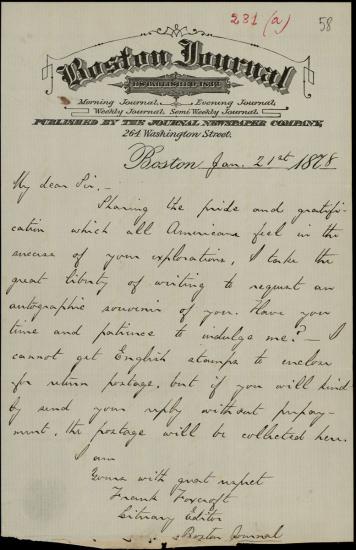 231 (a)
58
Boston Journal
ESTABLISHED 1833
Morning Journal, Evening Journal,
Weekly Journal, Semi Weekly Journal.
PUBLISHED BY THE JOURNAL NEWSPAPER COMPANY,
264 Washington Street.
Boston Jan. 21st 1878
My dear Sir,-
Sharing the pride and gratifi-
cation which all Americans feel in the
success of your explorations, I take the
great liberty of writing to request an
autographic souvenir of you. Have you
time and patience to indulge me? - I
cannot get English stamps to enclose
for return postage, but if you will kind-
ly send your reply without prepay-
ment, the postage will be collected here.
I am
Yours with great respect
Frank Foxcroft
Literary Editor
Boston Journal